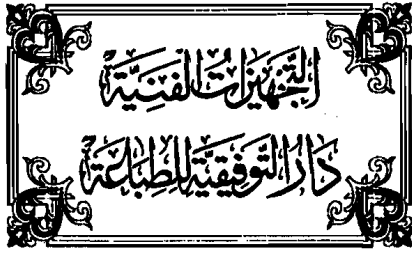 التَّجْهِيزَاتُ الفَنِيَّةُ
دَارُ التَّوفِيقِيَّةِ لِلطِّبَاعَةِ